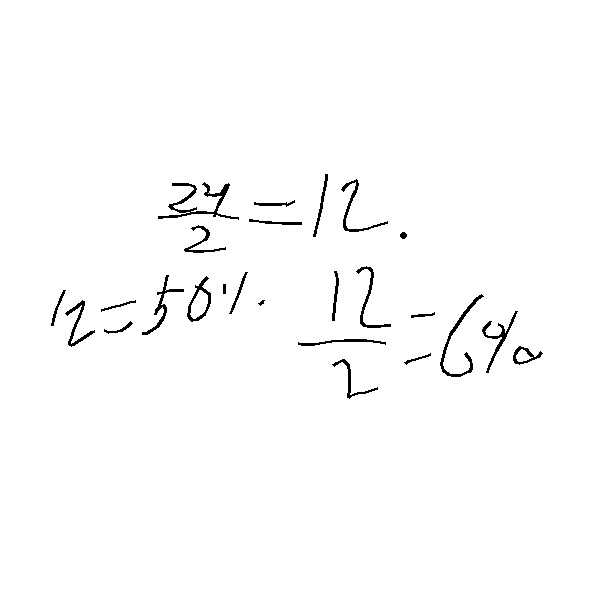 24/2 = 12.
12 = 50% 12/2 = 6%